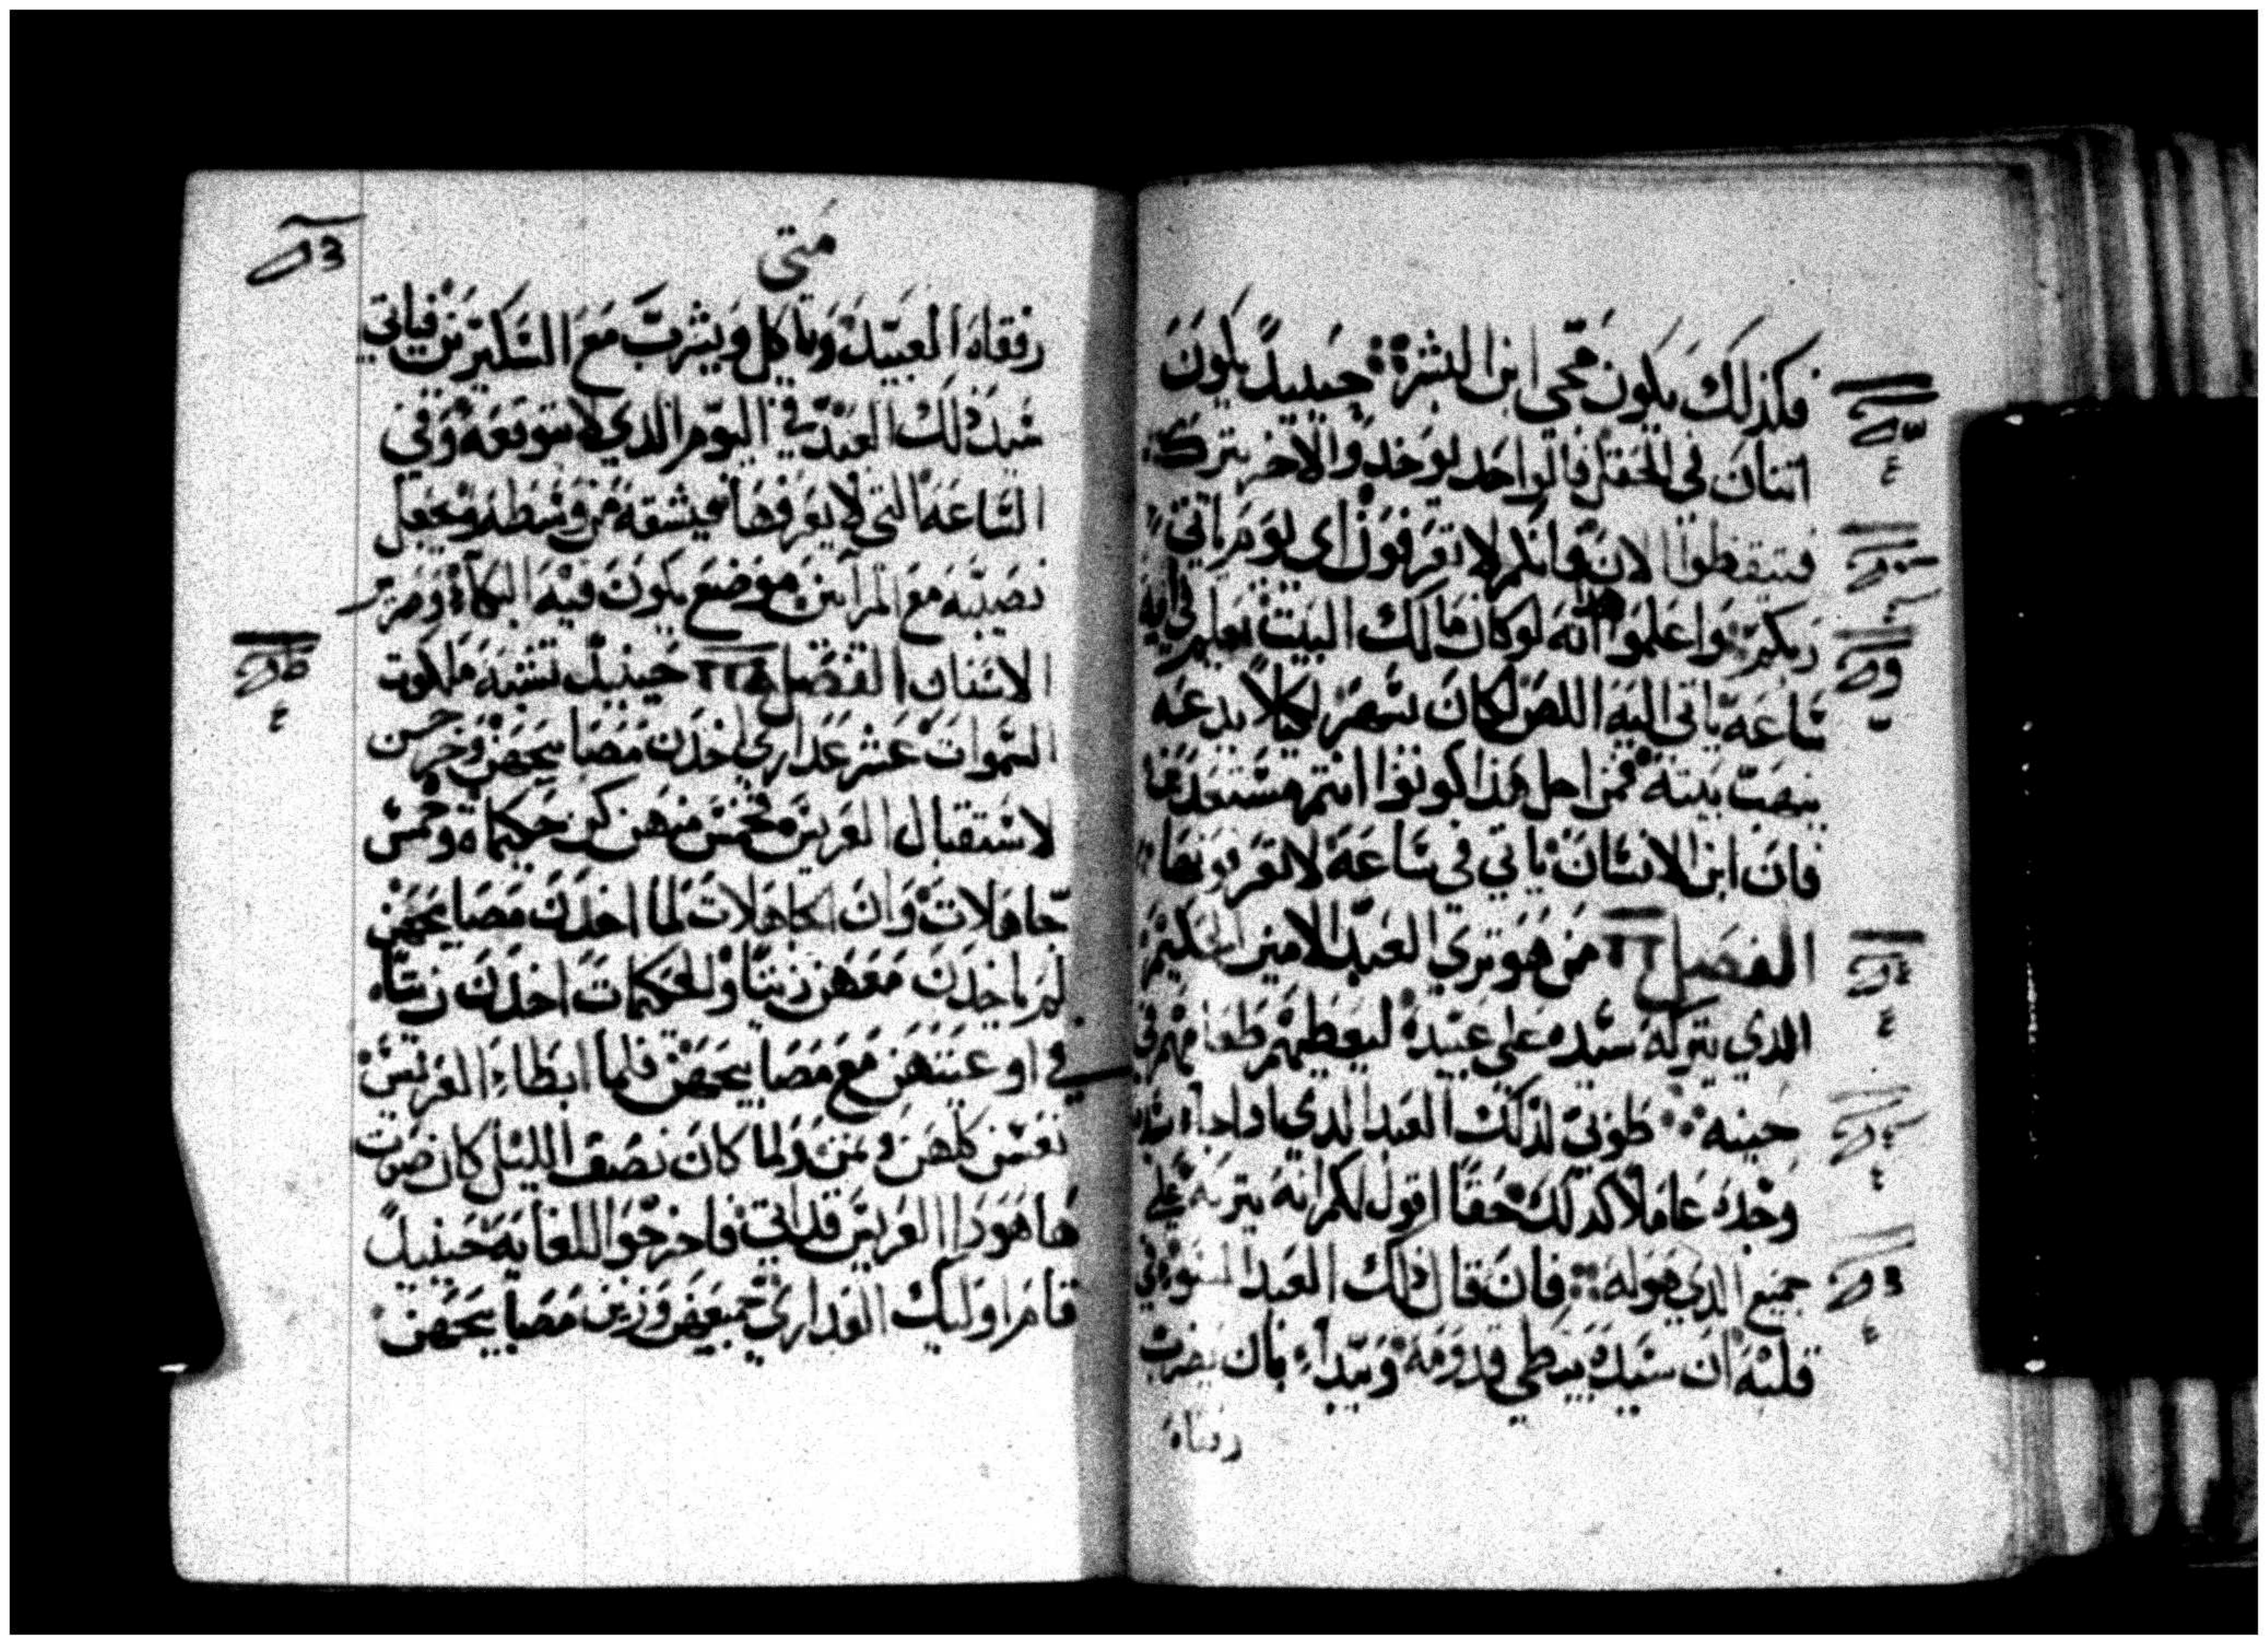 فكذلك يكون مجي ابن البشر حينيدً يكون
اتنان في الحقل فالواحد يوخد والاخر يترك
فتيقظوا الان فانكم لا تعرفون اي يوم ياتي
ربكم واعلموا انه لو كان مالك البيت يعلم في ايه
ساعه ياتي اليه اللص لكان يسهر لكيلا يدعه
ينهب بيته فمن اجل هذا كونوا انتم مستعدين
فان ابن الانسان ياتي في ساعه لا تعرفونها
الفصل من هو تري العبد الامين الحكيم
الدي يتركه سيده علي عبيده ليعطيهم طعامهم في
حينه طوبي لذلك العبد الدي ادا جاء سيده
وجده عاملاً كدلك حقاً اقول لكم انه يتركه علي
جميع الدي هوله فان قال ذلك العبد السو في
قلبه ان سيده يبطي قدومه ويبداء بان يضرب
رفقاه
متي
رفقاه العبيد وياكل ويشرب مع السكيرين فياتي
سيد دلك العبد في اليوم الدي لا يتوقعه وفي
الساعه التي لا يعرفها فيشقه من وسطه ويجعل
نصيبه مع المرآيين موضع يكون فيه البكاء وصرير
الاسنان الفصل حينيدً تشبه ملكوت
السموات عشر عداري اخدن مصابيحهن وخرجن
لاستقبال العريس فخمس منهن كن حكيماة وخمس
جاهلات وان الجاهلات لما اخدن مصابيحهن
لم ياخدن معهن زيتاً والحكيمات اخدن زيتاً
في اوعيتهن مع مصابيحهن فلما ابطاء العريس
نعسن كلهن ونمن ولما كان نصف الليل كان صوت
ها هودا العريس قد اتي فاخرجوا للقايه حينيدً
قام اوليك العداري جميعهن وزين مصابيحهن